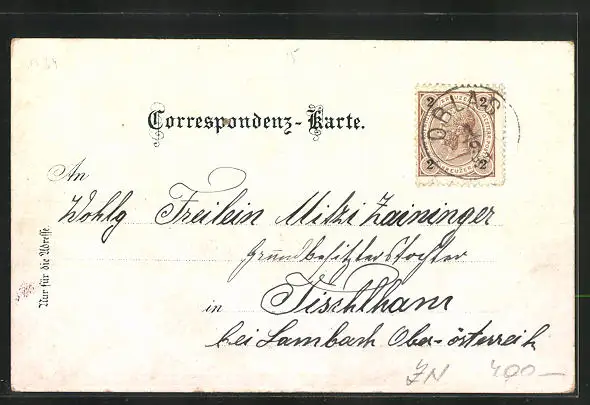 Correspondenz-Karte.
2 KREUZER 2
2 2
OBLAS
An
Wohlg Freilein Mitzi Zaininger
Grundbesitzerstochter
in Fischlham
bei Lambach Ober-österreich
Nur für die Adresse.
ZN 400—